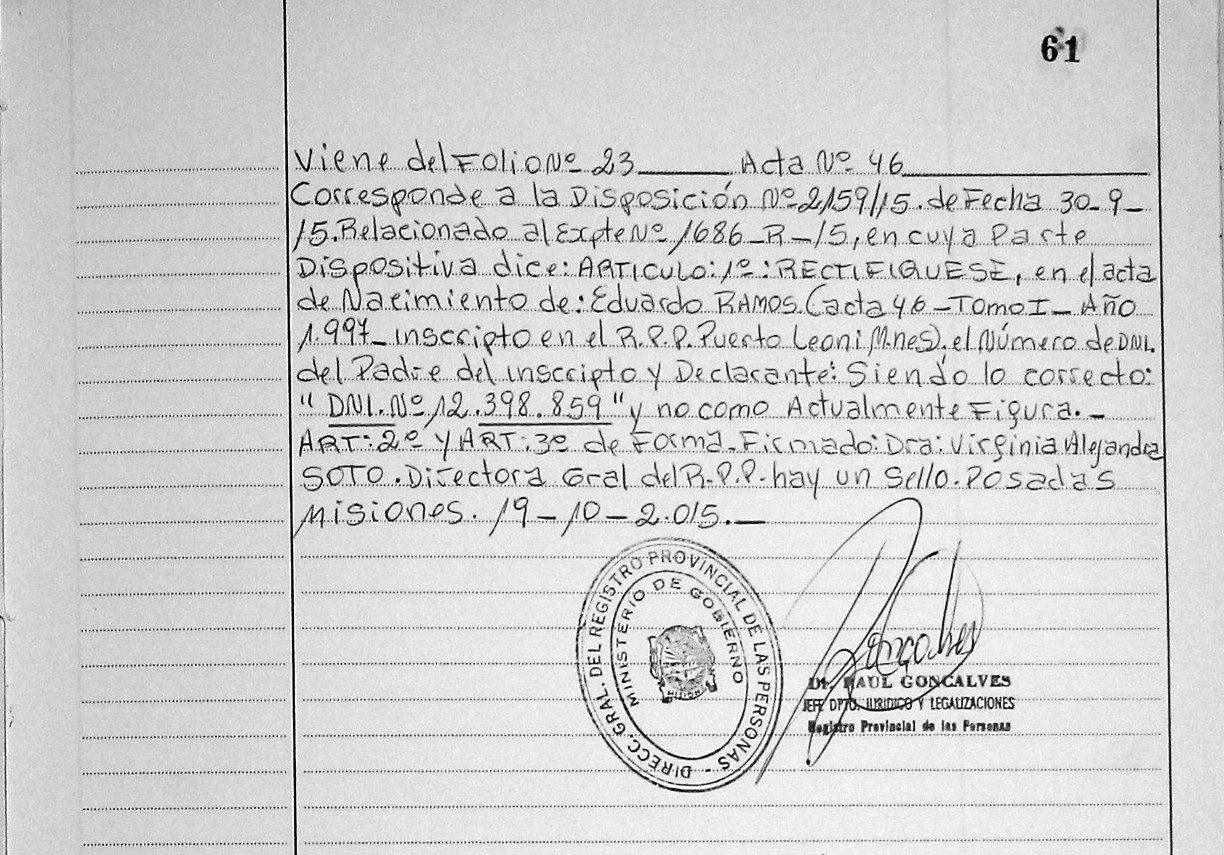 61
Viene del Folio Nº 23 Acta Nº 46
Corresponde a la Disposición Nº 2159/15. de Fecha 30-9-
15. Relacionado al Expte Nº 1686-R-15, en cuya Parte
Dispositiva dice: ARTICULO: 1º: RECTIFIQUESE, en el acta
de Nacimiento de: Eduardo RAMOS. (acta 46-Tomo I-Año
1.997- inscripto en el R.P.P. Puerto Leoni Mnes). el Número de DNI.
del Padre del inscripto y Declarante: Siendo lo correcto:
"DNI. Nº 12.398.859" y no como Actualmente Figura.-
ART: 2º y ART: 3º de Forma. Firmado: Dra: Virginia Alejandra
SOTO. Directora Gral del R.P.P. hay un Sello. Posadas
Misiones. 19-10-2.015.-
DIRECC. GRAL. DEL REGISTRO PROVINCIAL DE LAS PERSONAS -
MINISTERIO DE GOBIERNO
MISIONES
Goncalves
Dr. RAUL GONCALVES
JEFE DPTO. JURIDICO Y LEGALIZACIONES
Registro Provincial de las Personas